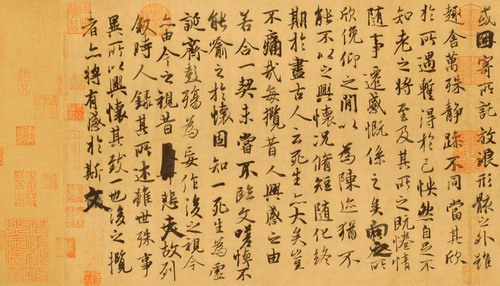 或因寄所託放浪形骸之外雖
趣舍萬殊静躁不同當其欣
於所遇蹔得於己怏然自足不
知老之將至及其所之既惓情
隨事遷感慨係之矣向之所
欣俛仰之間以為陳迹猶不
能不以之興懷況脩短隨化終
期於盡古人云死生亦大矣豈
不痛哉每攬昔人興感之由
若合一契未嘗不臨文嗟悼不
能喻之於懷固知一死生為虛
誕齊彭殤為妄作後之視今
亦由今之視昔悲夫故列
敘時人錄其所述雖世殊事
異所以興懷其致一也後之攬
者亦將有感於斯文